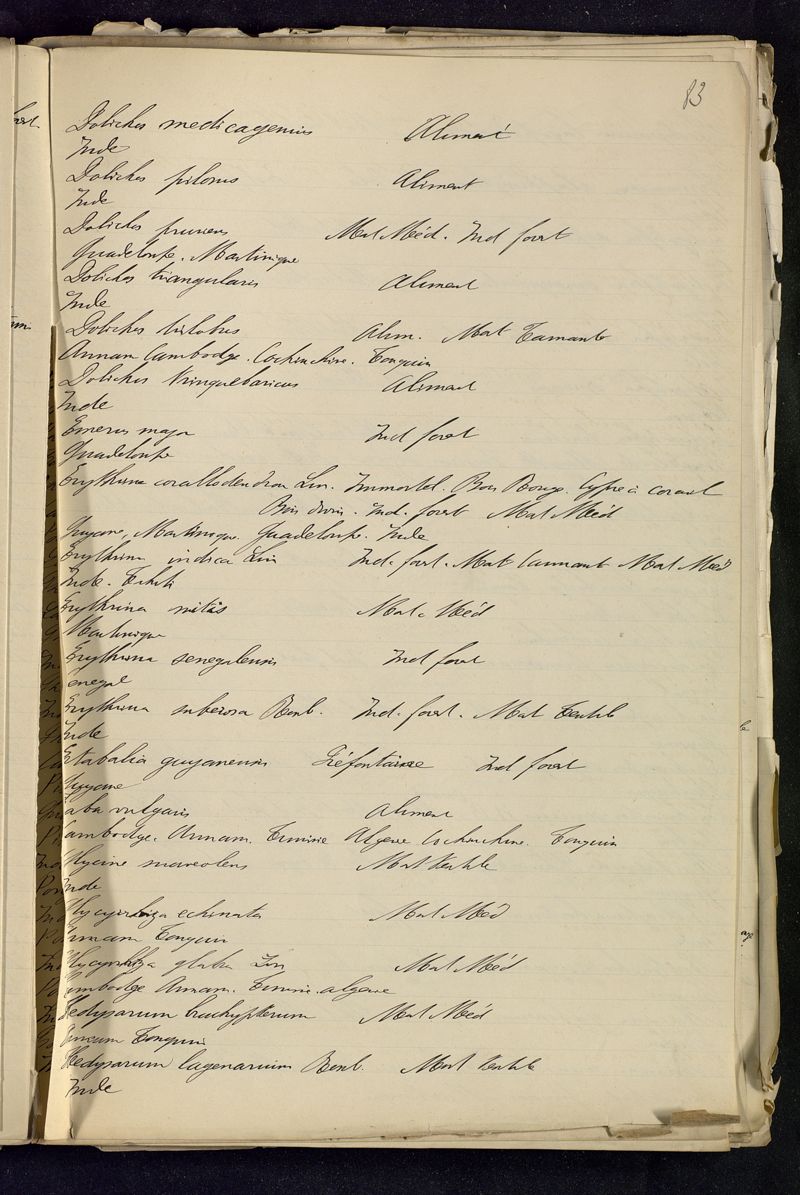 83
Dolichos medicagenius Aliment
Inde
Dolichos pilosus Aliment
Inde
Dolichos pruriens Mat Méd. Ind forst
Guadeloupe. Martinique
Dolichos triangularis Aliment
Inde
Dolichos trilobus Alim. Mat
Annam Cambodge. Cochinchine. Tonquin
Dolichos tringuebaricus Aliment
Inde
Emerus major Ind forst
Guadeloupe
Erythrina corallodendron Lin. Immortel. Bois Rouge. à corail
Bois. Ind. forst Mat Méd
Guyane, Martinique. Guadeloupe. Inde
Erythrina indica Lin Ind. forst. Mat tannant Mat Méd
Inde. Tahiti
Erythrina mitis Mat. Méd
Martinique
Erythrina senegalensis Ind forst
enegal
Erythrina suberosa Roxb. Ind. forst. Mat Textile
Inde
Etabalia guyanensis Ind forst
Guyane
aba vulgaris Aliment
ambodge. Annam. Tunisie Algerie Cochinchine. Tonquin
lycine Mat textile
Inde
lycyrrhiza echinata Mat Méd
Annam Tonquin
lycyrrhiza glabra Lin Mat Méd
ambodge Annam. Tunisie. algerie
Hedysarum brachypterum Mat Méd
Annam Tonquin
Hedysarum lagenarium Roxb. Mat textile
Inde